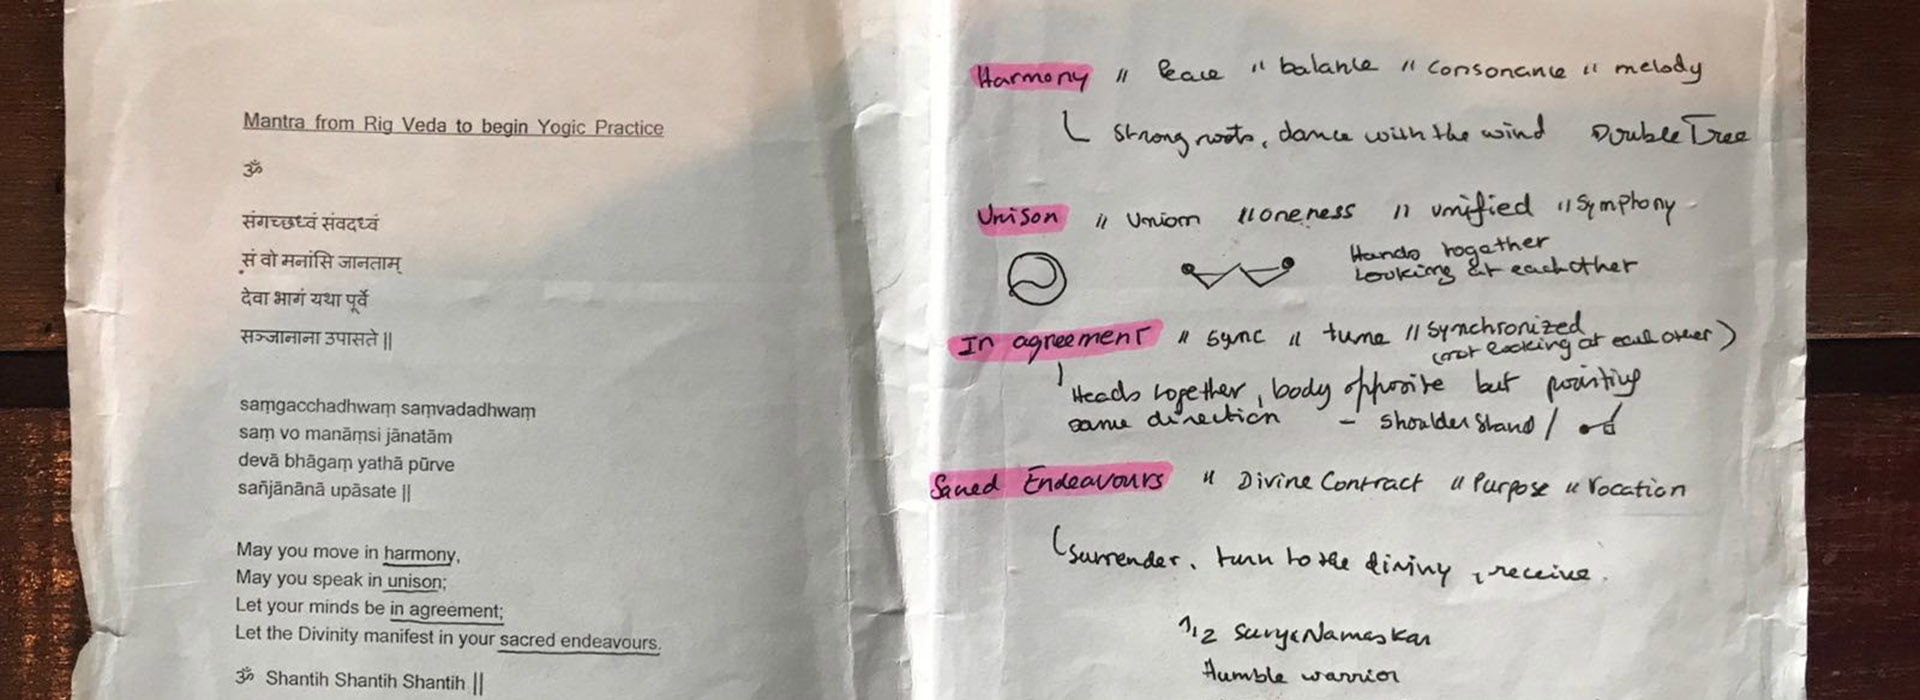 Mantra from Rig Veda to begin Yogic Practice
ॐ
संगच्छध्वं संवदध्वं
सं वो मनांसि जानताम्
देवा भागं यथा पूर्वे
सञ्जानाना उपासते ||
saṃgacchadhwaṃ saṃvadadhwaṃ
saṃ vo manāṃsi jānatām
devā bhāgaṃ yathā pūrve
sañjānānā upāsate ||
May you move in harmony,
May you speak in unison;
Let your minds be in agreement;
Let the Divinity manifest in your sacred endeavours.
ॐ Shantih Shantih Shantih ||
Harmony " Peace " balance " consonance " melody
Strong roots, dance with the wind Double Tree
Unison " Union " oneness " unified " Symphony
Hands together
Looking at each other
In agreement " sync " tune " Synchronized
(not looking at each other)
Heads together, body opposite but pointing
same direction - Shoulder Stand /
Sacred Endeavours " Divine Contract " Purpose " Vocation
Surrender, turn to the , receive.
1/2 Surya Namaskar
Humble warrior